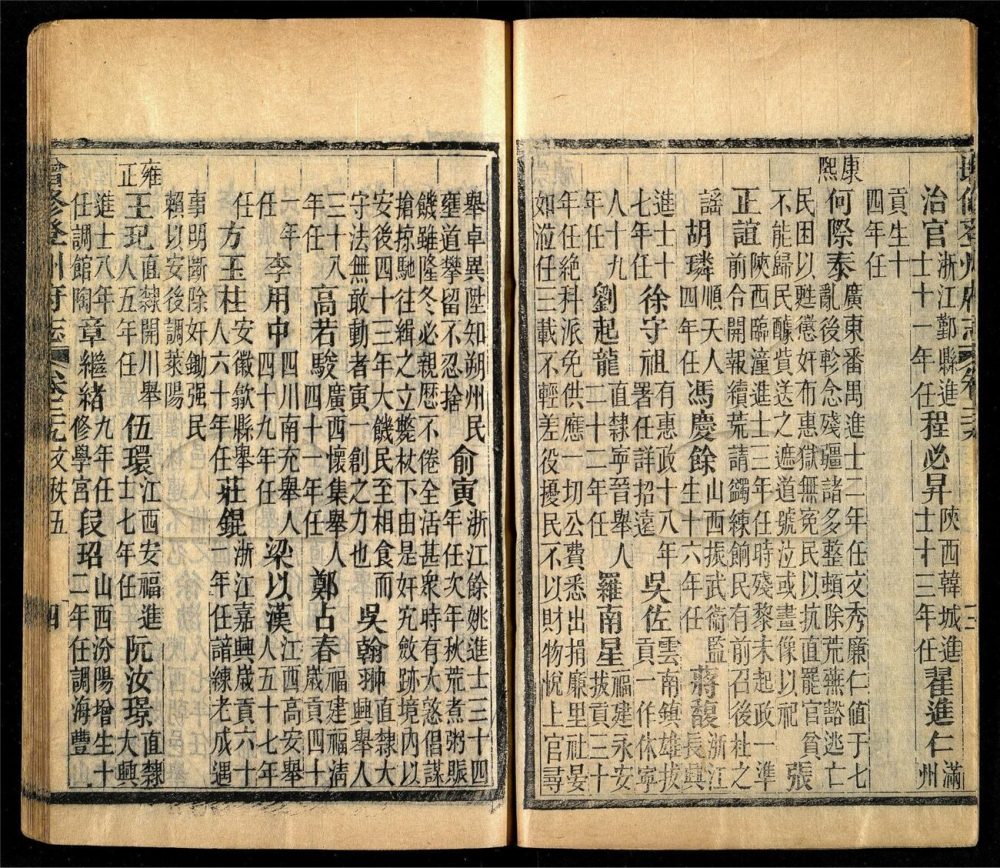 治官 浙江鄞縣進士十一年任 程必昇 陝西韓城進士十三年任 翟進仁 滿州
貢生十四年任
康熙 何際泰 廣東番禺進士二年任文秀廉仁值于七亂後軫念殘疆諸多整頓除荒蕪豁逃亡
民困以甦懲奸布惠獄無冤民以抗直罷官貧不能歸民醵貲送之遮道號泣或畫像以祀 張
正誼 陝西臨潼進士三年任時殘黎未起政一準前令開報續荒請蠲練餉民有前召後杜之
謠 胡璘 順天人四年任 馮慶餘 山西振武衛監生十六年任 蔣馥 浙江長興
進士十七年任 徐守祖 有惠政十八年署任詳招遠 吳佐 雲南鎮雄拔貢一作休寧
人十九年任 劉起龍 直隸寧晉舉人二十二年任 羅南星 福建永安拔貢三十
年任絕科派免供應一切公費悉出捐廉里社晏如涖任三載不輕差役擾民不以財物悅上官尋
舉卓異陞知朔州民壅道攀留不忍捨 俞寅 浙江餘姚進士三十四年任次年秋荒煮粥賑
饑雖隆冬必親歷不倦全活甚衆時有大憝倡謀搶掠馳往緝之立斃杖下由是奸宄斂跡境內以
安後四十三年大饑民至相食而字法無敢動者寅一創之力也 吳翰翀 直隸大興舉人
三十八年任 高若駿 廣西懷集舉人四十一年任 鄭占春 福建福清歲貢四十
一年任 李用中 四川南充舉人四十九年任 梁以漢 江西高安舉人五十七年
任 方玉柱 安徽歙縣舉人六十年任 莊錕 浙江嘉興歲貢六十一年任諳練老成遇
事明斷除奸鋤强民賴以安後調萊陽
雍正 王玘 直隸開川舉人五年任 伍環 江西安福進士七年任 阮汝璟 直隸大興
進士八年任調館陶 章繼緒 九年任修學宮 段玿 山西汾陽增生十二年任調海豐
增修登州府志 文秩五 四